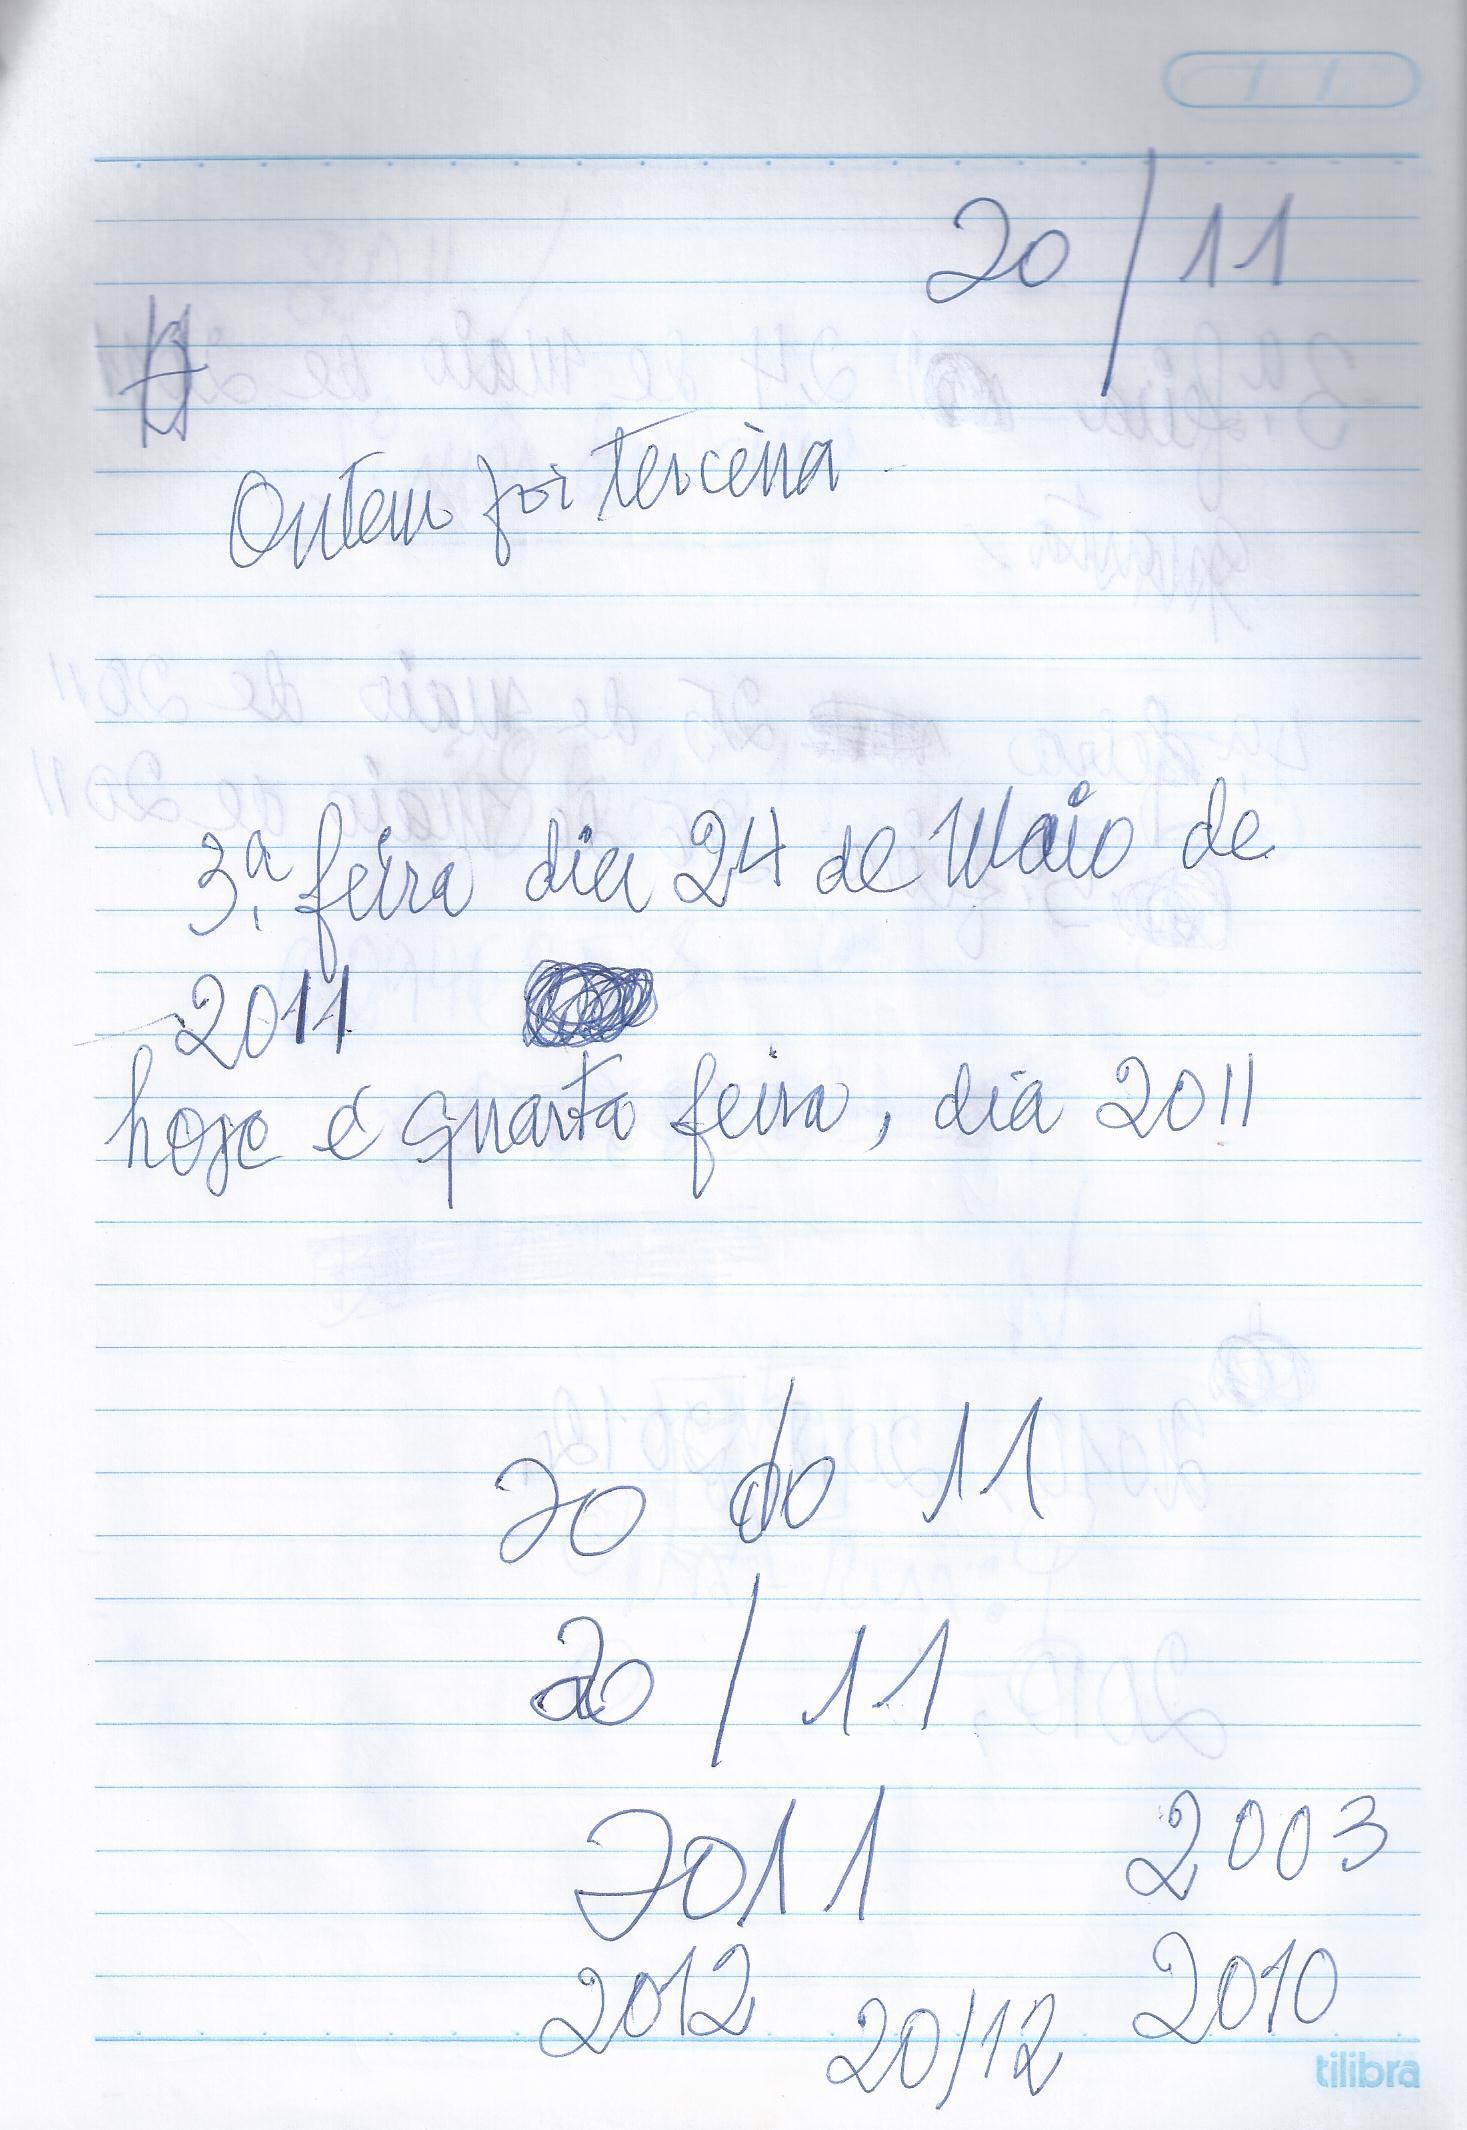 20/11
Ontem foi terceira
3ª feira dia 24 de Maio de
2011
hoje é quarta feira, dia 2011
20 do 11
20/11
2011
2003
2012
20/12
2010
tilibra